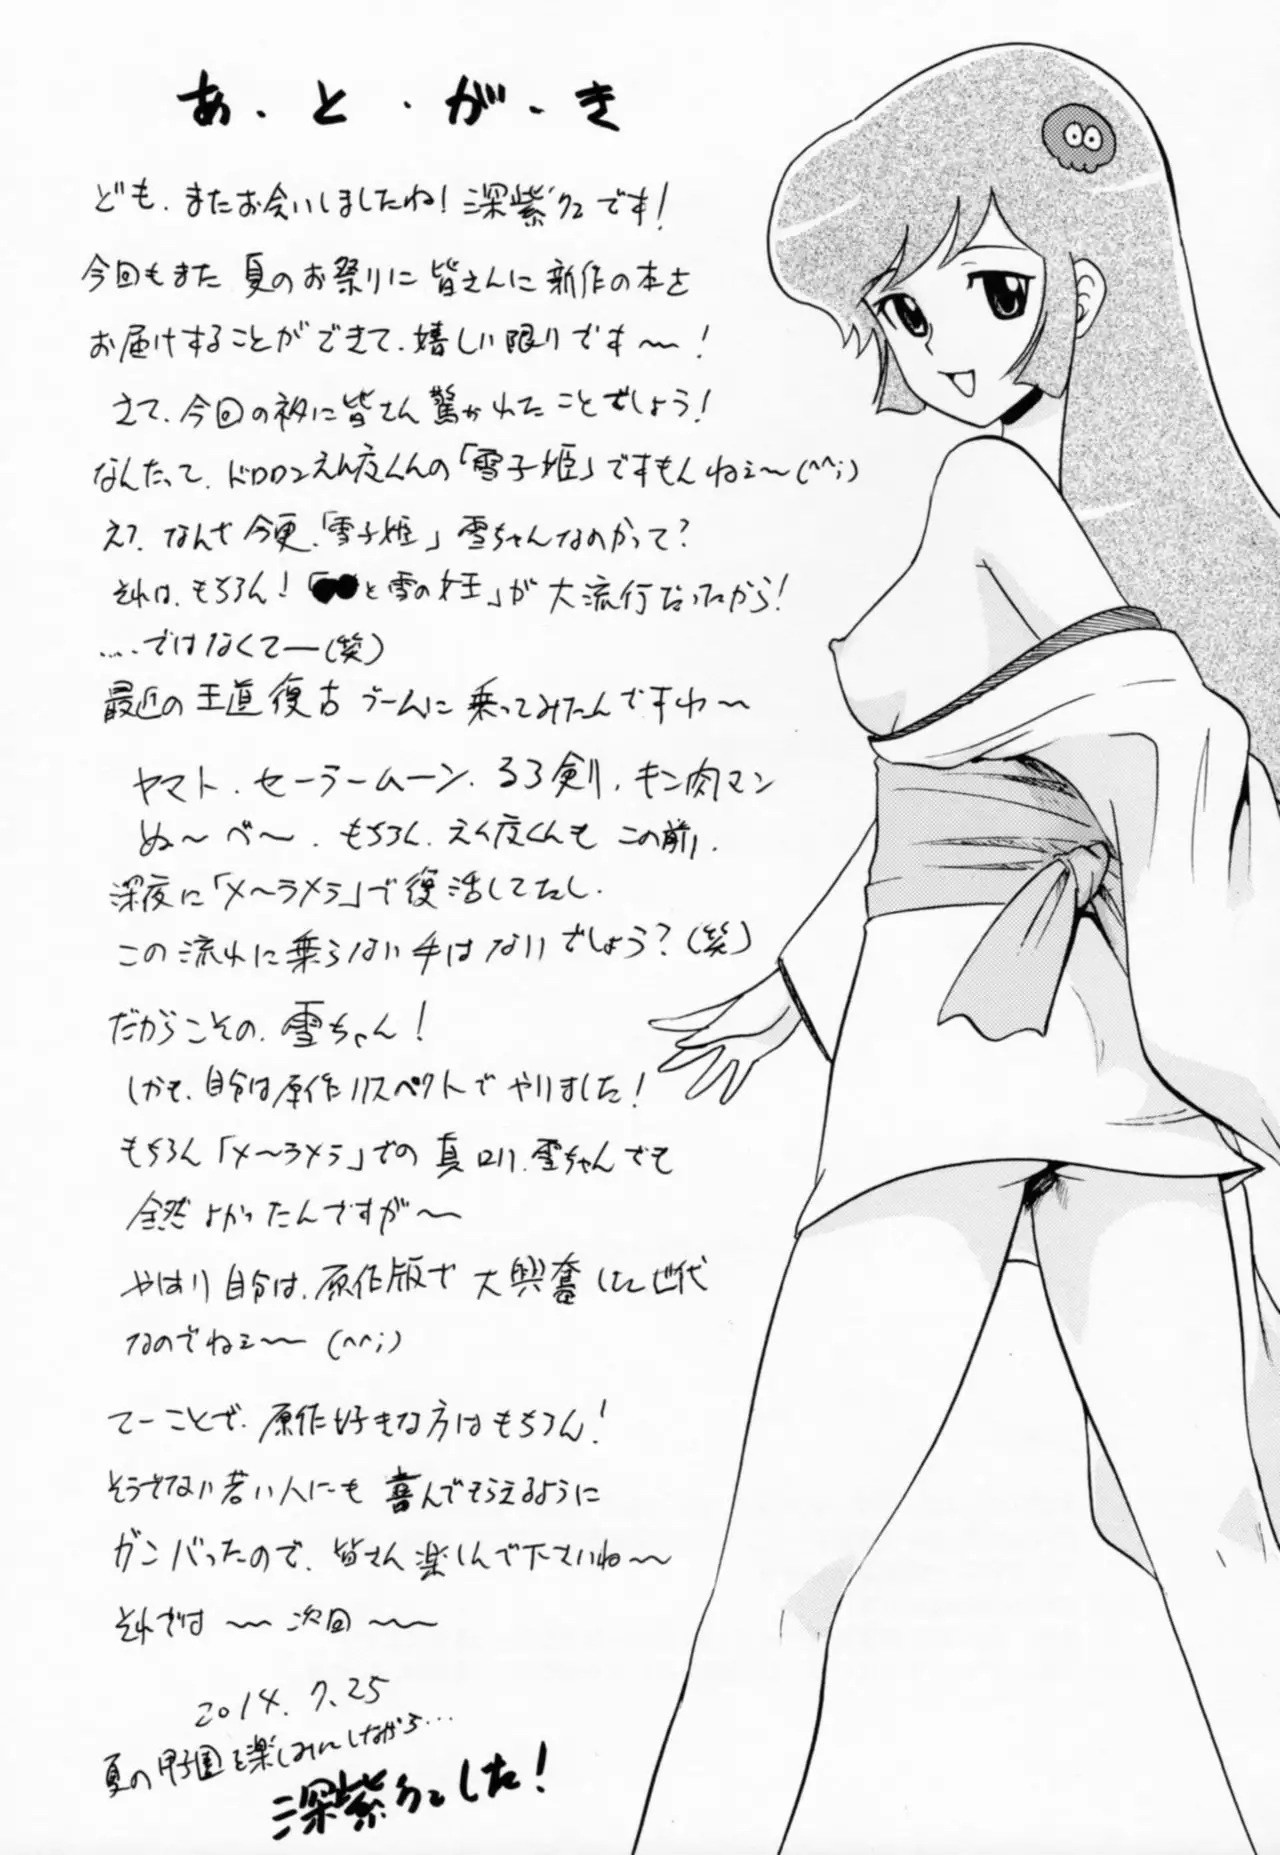 あ・と・が・き
ども、またお会いしましたね！深紫クニです！
今回もまた 夏のお祭りに 皆さんに 新作の本を
お届けすることができて、嬉しい限りです〜！
さて、今回のネタに皆さん驚かれたことでしょう！
なんたって、ドロロンえん魔くんの「雪子姫」ですもんねェ〜(^^;)
え？なんで 今更、「雪子姫」雪ちゃんなのかって？
それは、もちろん！「●●と雪の女王」が 大流行だったから！
....ではなくてー(笑)
最近の 王道復古ブームに 乗ってみたんですわ〜
ヤマト、セーラームーン、るろ剣、キン肉マン
ぬ〜べ〜、もちろん、えん魔くんも この前、
深夜に「メ〜ラメラ」で復活してたし、
この流れに乗らない手はないでしょう？(笑)
だからこその、雪ちゃん！
しかも、自分は原作リスペクトで やりました！
もちろん「メ〜ラメラ」での 真ロリ雪ちゃんでも
全然よかったんですが〜
やはり自分は、原作版で 大興奮した世代
なのでねェ〜〜 (^^;)
てーことで、原作好きな方はもちろん！
そうでない若い人にも 喜んでもらえるように
ガンバったので、皆さん楽しんで下さいね〜
それでは 〜 次回 〜
2014.7.25
夏の甲子園を楽しみにしながら…
深紫クニでした！